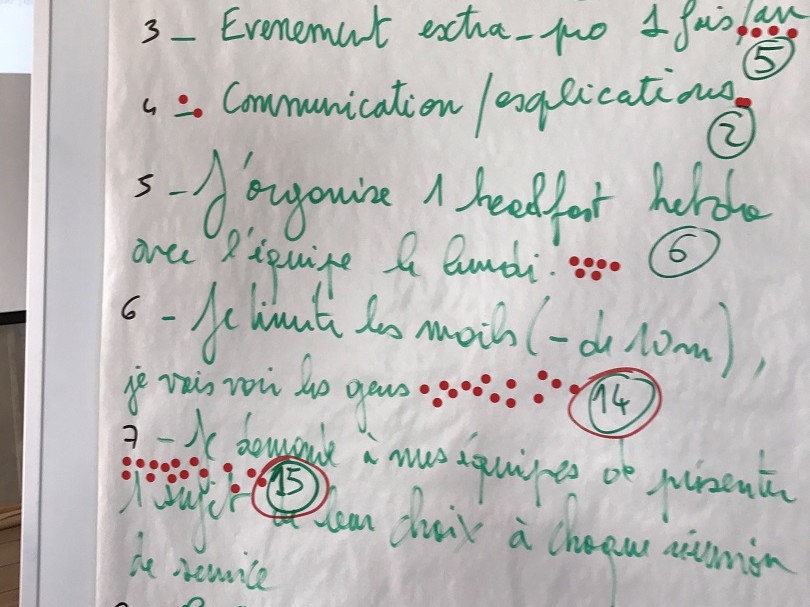 3 - Evenement extra-pro 1 fois/an
5
4 - Communication/esplications
2
5 - J'organise 1 headfast hebdo
avec l'équipe le lundi.
6
6 - Je limite les mails (- de 10m),
je vais voir les gens
14
7 - Je demande à mes équipes de présenter
15
1 sujet de leur choix à chaque réunion
de service